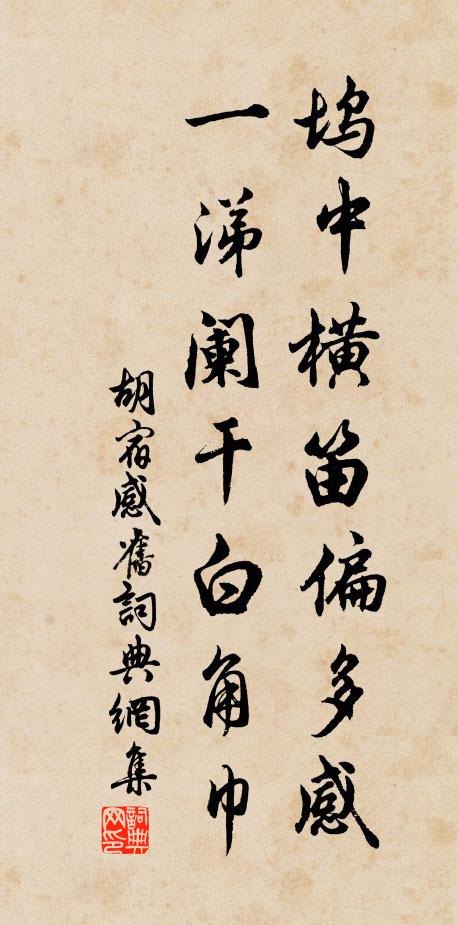 塢中橫笛偏多感
一涕闌干白角巾
胡宿感舊詞典網集
詞典網印